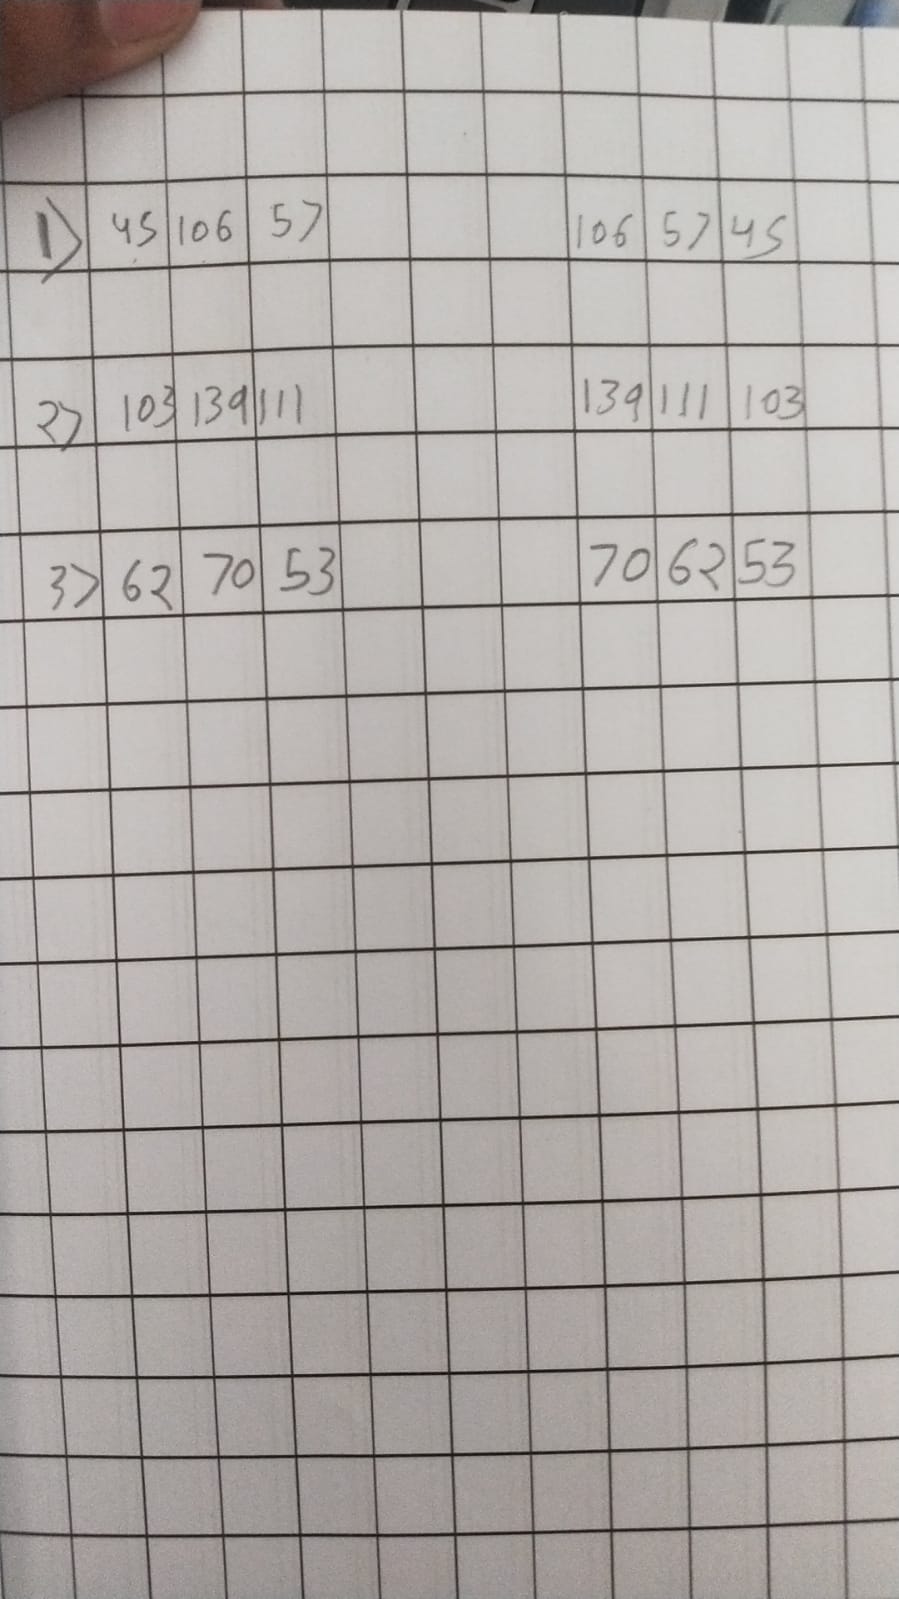 1) 45 106 57 106 57 45
2) 103 139 111 139 111 103
3) 62 70 53 70 62 53